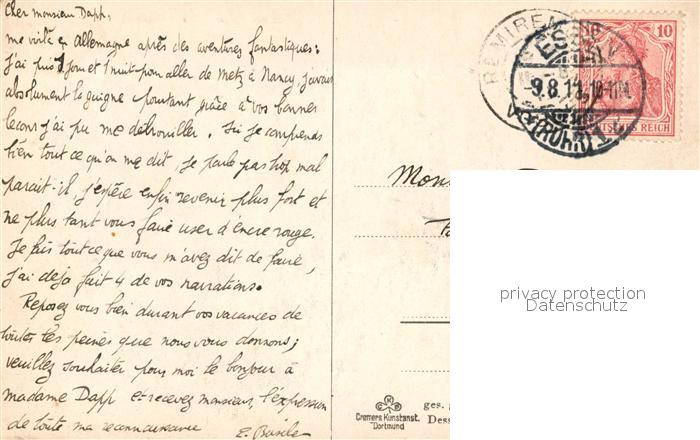 Cher monsieur Dapp,
me voilà en Allemagne après des aventures fantastiques:
j'ai mis 1 jour et 1 nuit pour aller de Metz à Nancy, j'avais
absolument la guigne pourtant grâce à vos bonnes
leçons j'ai pu me débrouiller. Si je comprends
bien tout ce qu'on me dit je parle pas trop mal
paraît-il j'espère enfin revenir plus fort et
ne plus tant vous faire user d'encre rouge.
Je fais tout ce que vous m'avez dit de faire,
j'ai déjà fait 4 de vos narrations.
Reposez vous bien durant vos vacances de
toutes les peines que nous vous donnons;
veuillez souhaiter pour moi le bonjour à
madame Dapp et recevez monsieur, l'expression
de toute ma reconnaissance
E.
REMIREM
ESSEN
9.8.11. 10-11N.
(RUHR) 1
10
10
DEUTSCHES REICH
Mons
privacy protection
Datenschutz
Cramers Kunstanst.
Dortmund
ges.
Dess